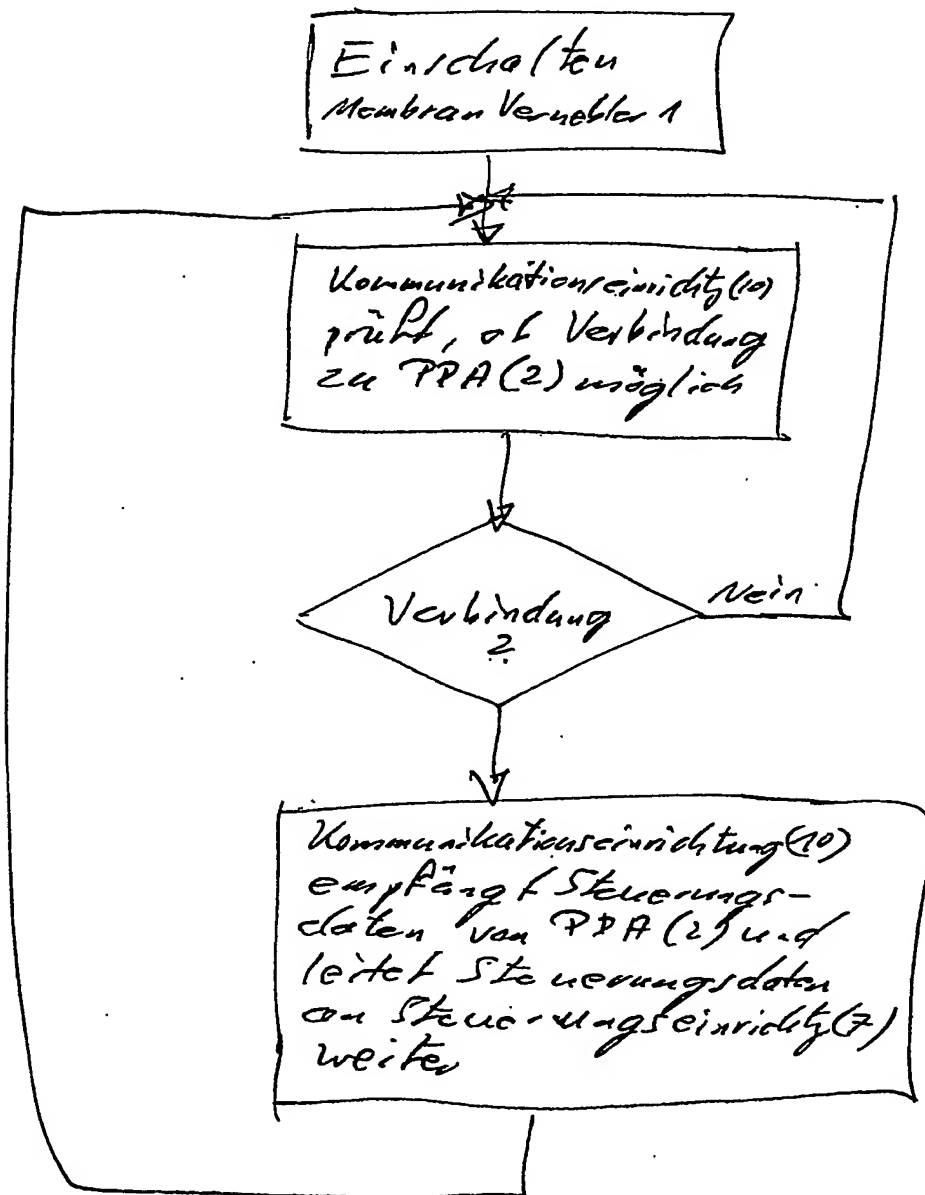 Einschalten
Membran Vernebler 1
Kommunikationseinrichtg (10)
prüft, ob Verbindung
zu PDA (2) möglich
Verbindung
?
Nein
Kommunikationseinrichtung (10)
empfängt Steuerungs-
daten von PDA (2) und
leitet Steuerungsdaten
an Steuerungseinrichtg (7)
weiter